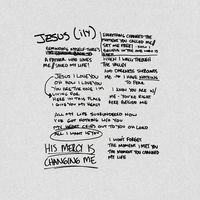 JESUS (ily)
REMINDING MYSELF THERE'S
A FATHER WHO LOVES
ME / SAVED MY LIFE!
JESUS I LOVE YOU
OH HOW I LOVE YOU
YOU ARE THE ONE I'M
LIVING FOR
HERE IN THIS PLACE
I GIVE YOU MY HEART
ALL MY LIFE SURRENDERED NOW
I'VE GOT NOTHING W/O YOU
MY HEART CRIES OUT TO YOU OH LORD
ALL I WANT IS YOU
HIS MERCY IS
CHANGING ME
EVERYTHING CHANGED THE
MOMENT YOU CALLED ME/
SET ME FREE!
WHEN I WALK THROUGH
THE VALLEY
AND DARKNESS SURROUNDS
ME I HAVE NOTHING
TO FEAR
I KNOW YOU ARE W/
ME - YOU'RE RIGHT
HERE BESIDE ME
I WON'T FORGET
THE MOMENT I MET YOU
THE MOMENT YOU CHANGED
MY LIFE